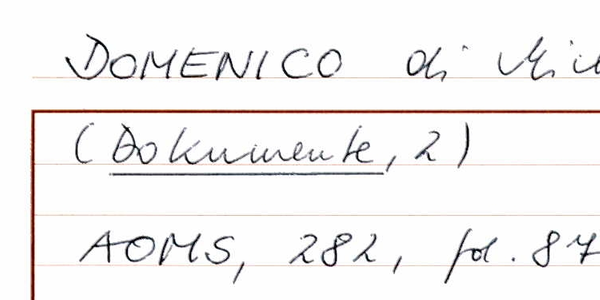 DOMENICO di
(Dokumente, 2)
AOMS, 282, fol. 87